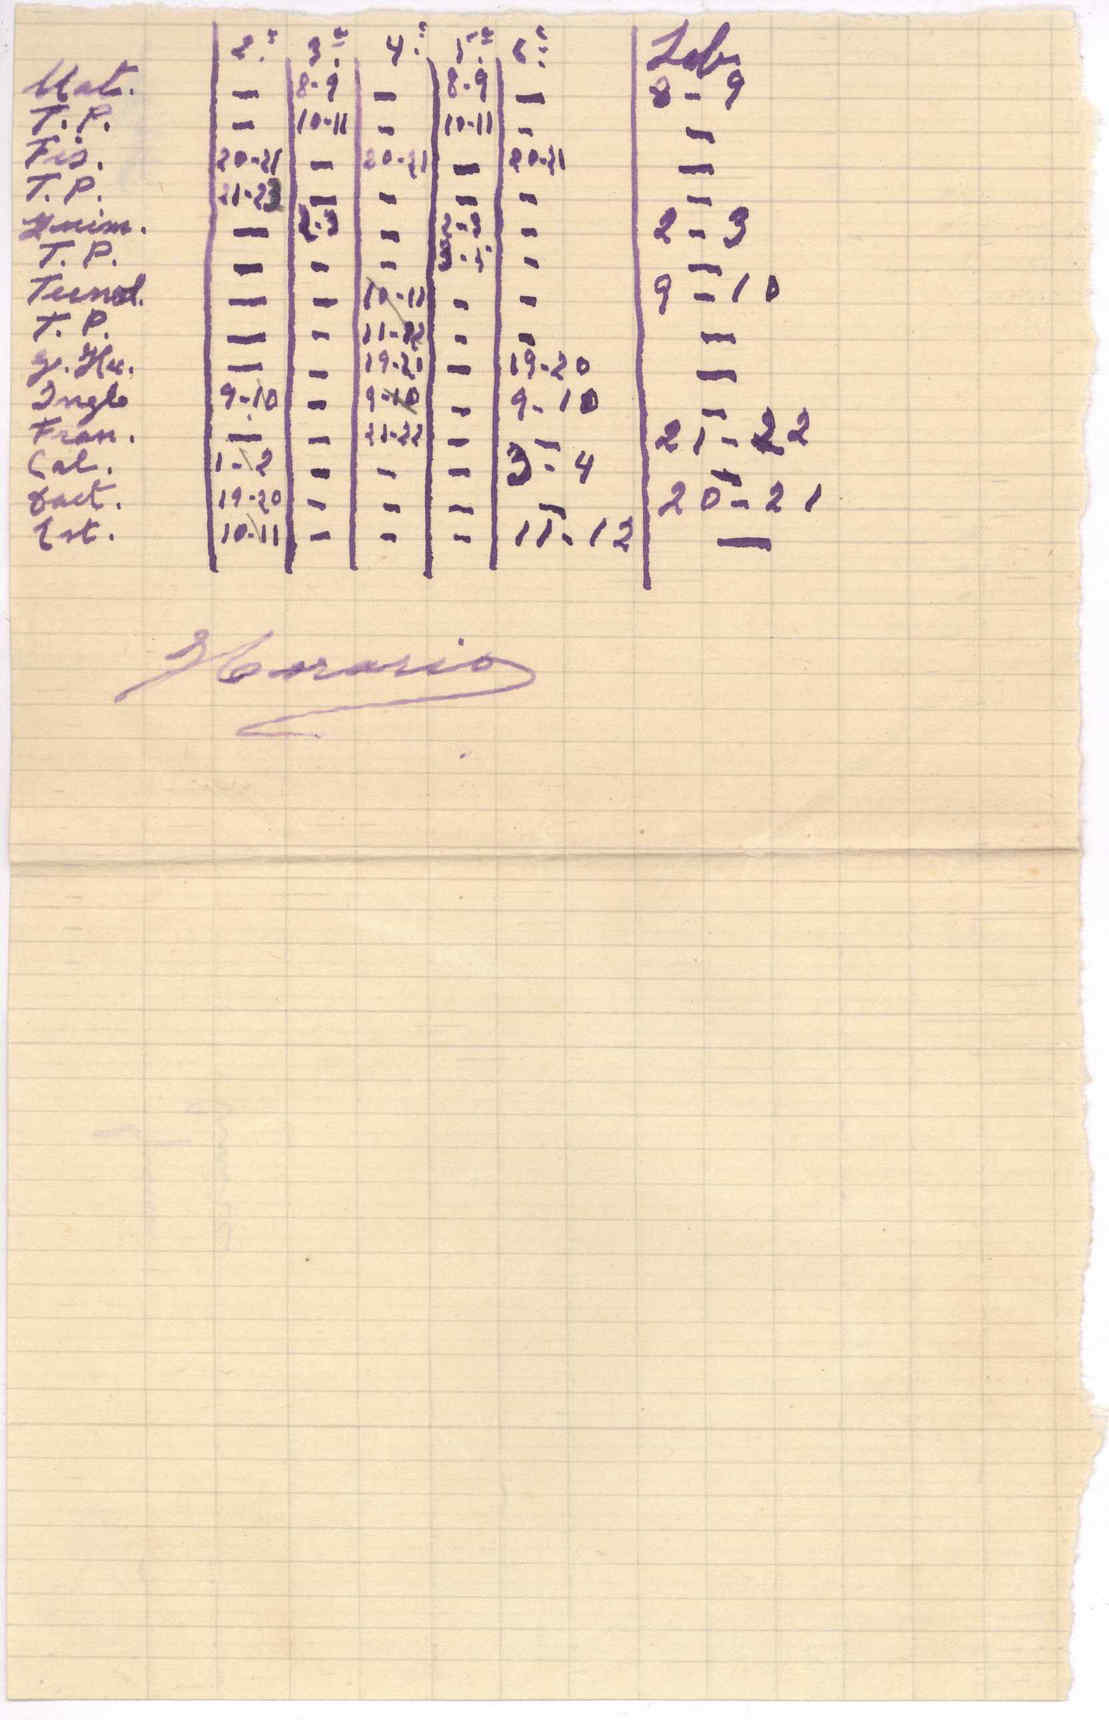 2.ª 3.ª 4.ª 5.ª 6.ª Sab.
Mat. — 8-9 — 8-9 — 8-9
T.P. — 10-11 - 10-11 - —
Fis. 20-21 — 20-21 — 20-21 —
T.P. 21-23 — - - - —
Quim. — 2-3 - 2-3 - 2-3
T.P. — - - 3-5 - —
Tecnol. — — 10-11 - - 9-10
T.P. — - 11-12 - - —
g. - 19-20 - 19-20 —
Ingle 9-10 - 9-10 - 9-10 —
Fran. — - 21-22 - — 21-22
Cal. 1-2 - - - 3-4 —
Dact. 19-20 - - - — 20-21
Est. 10-11 - - - 11-12 —
Horario